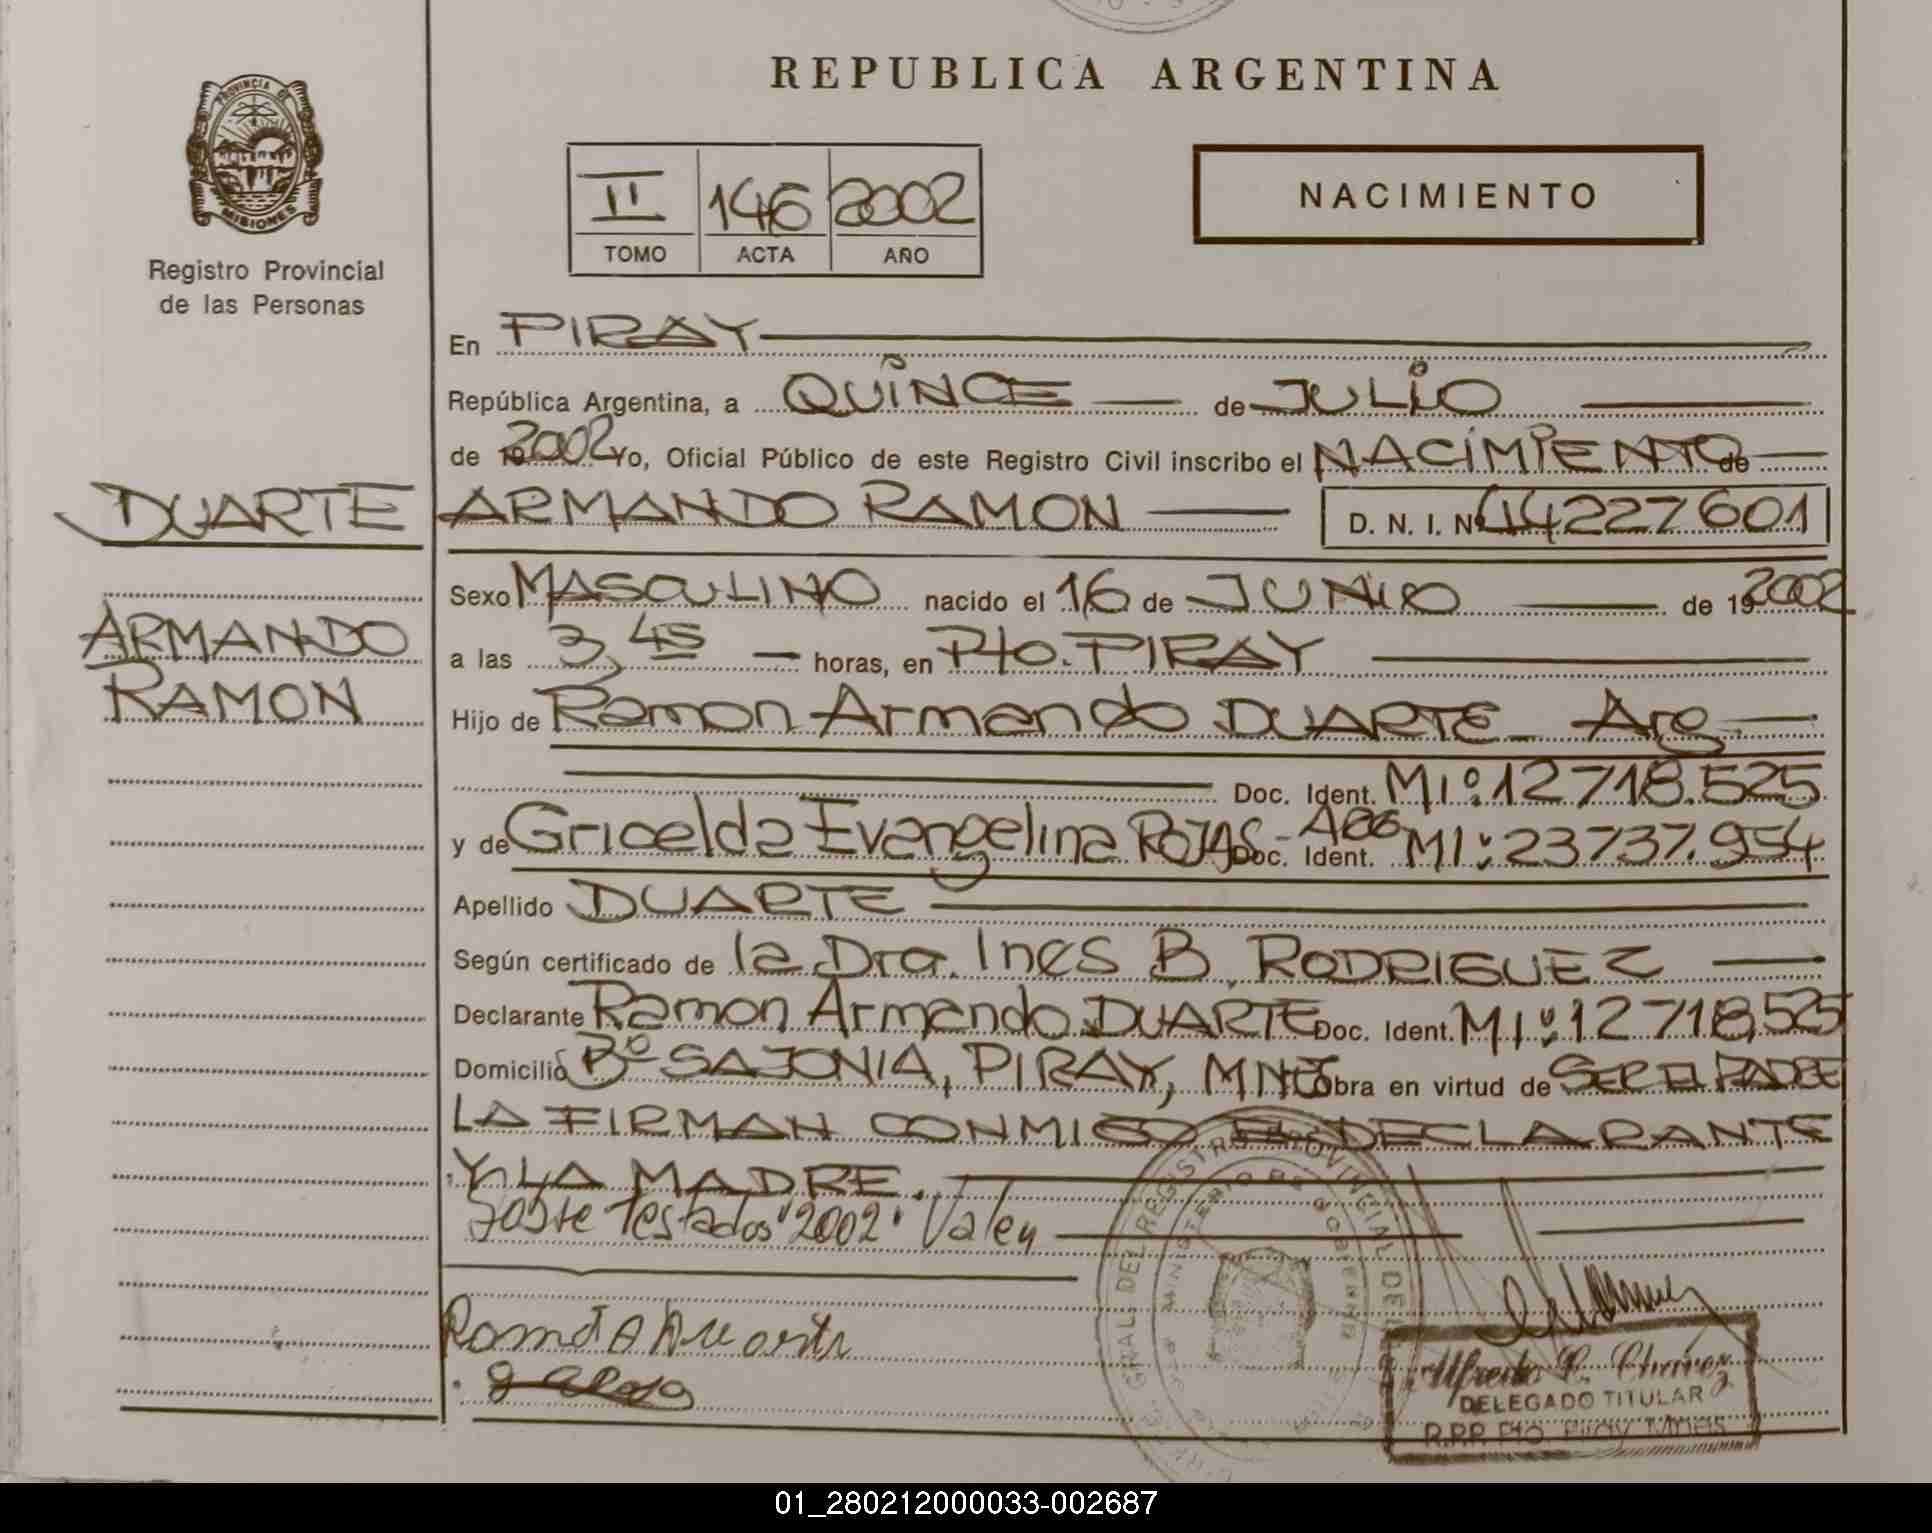 REPUBLICA ARGENTINA
PROVINCIA DE
MISIONES
Registro Provincial
de las Personas
II 146 2002
TOMO ACTA AÑO
NACIMIENTO
En PIRAY
República Argentina, a QUINCE de JULIO
de 19 2002 Yo, Oficial Público de este Registro Civil inscribo el NACIMIENTO de
DUARTE ARMANDO RAMON D. N. I. Nº 44227601
Sexo MASCULINO nacido el 16 de JUNIO de 19 2002
ARMANDO
a las 3,45 horas, en Pto. PIRAY
RAMON
Hijo de Ramon Armando DUARTE - Arg
Doc. Ident. MIº: 12718.525
y de Gricelda Evangelina ROJAS - ARG Doc. Ident. MI: 23737.954
Apellido DUARTE
Según certificado de la Dra. Ines B. RODRIGUEZ
Declarante Ramon Armando DUARTE Doc. Ident. MIº: 12718,525
Domicilio Bº SAJONIA, PIRAY, MNES Obra en virtud de SER EL PADRE
LA FIRMAN CONMIGO EL DECLARANTE
Y LA MADRE.
Testados "2002" Valen
GRAL. DEL REGISTRO PROVINCIAL DE
MINISTERIO DE GOBIERNO
Alfredo C. Chávez
DELEGADO TITULAR
R.P.P. Pto. Piray Mnes
01_280212000033-002687